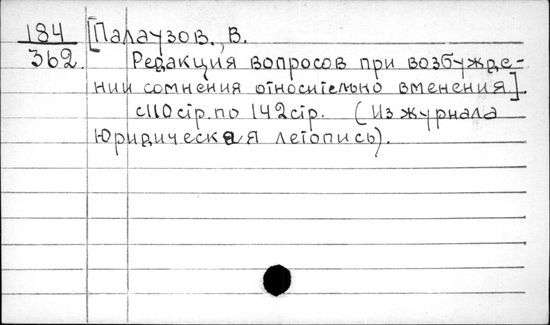 184 [Палаузов, В.
362. Редакция вопросов при возбужде-
нии сомнения относительно вменения].
с 110 стр. по 142 стр. (Из журнала
Юридическая летопись).